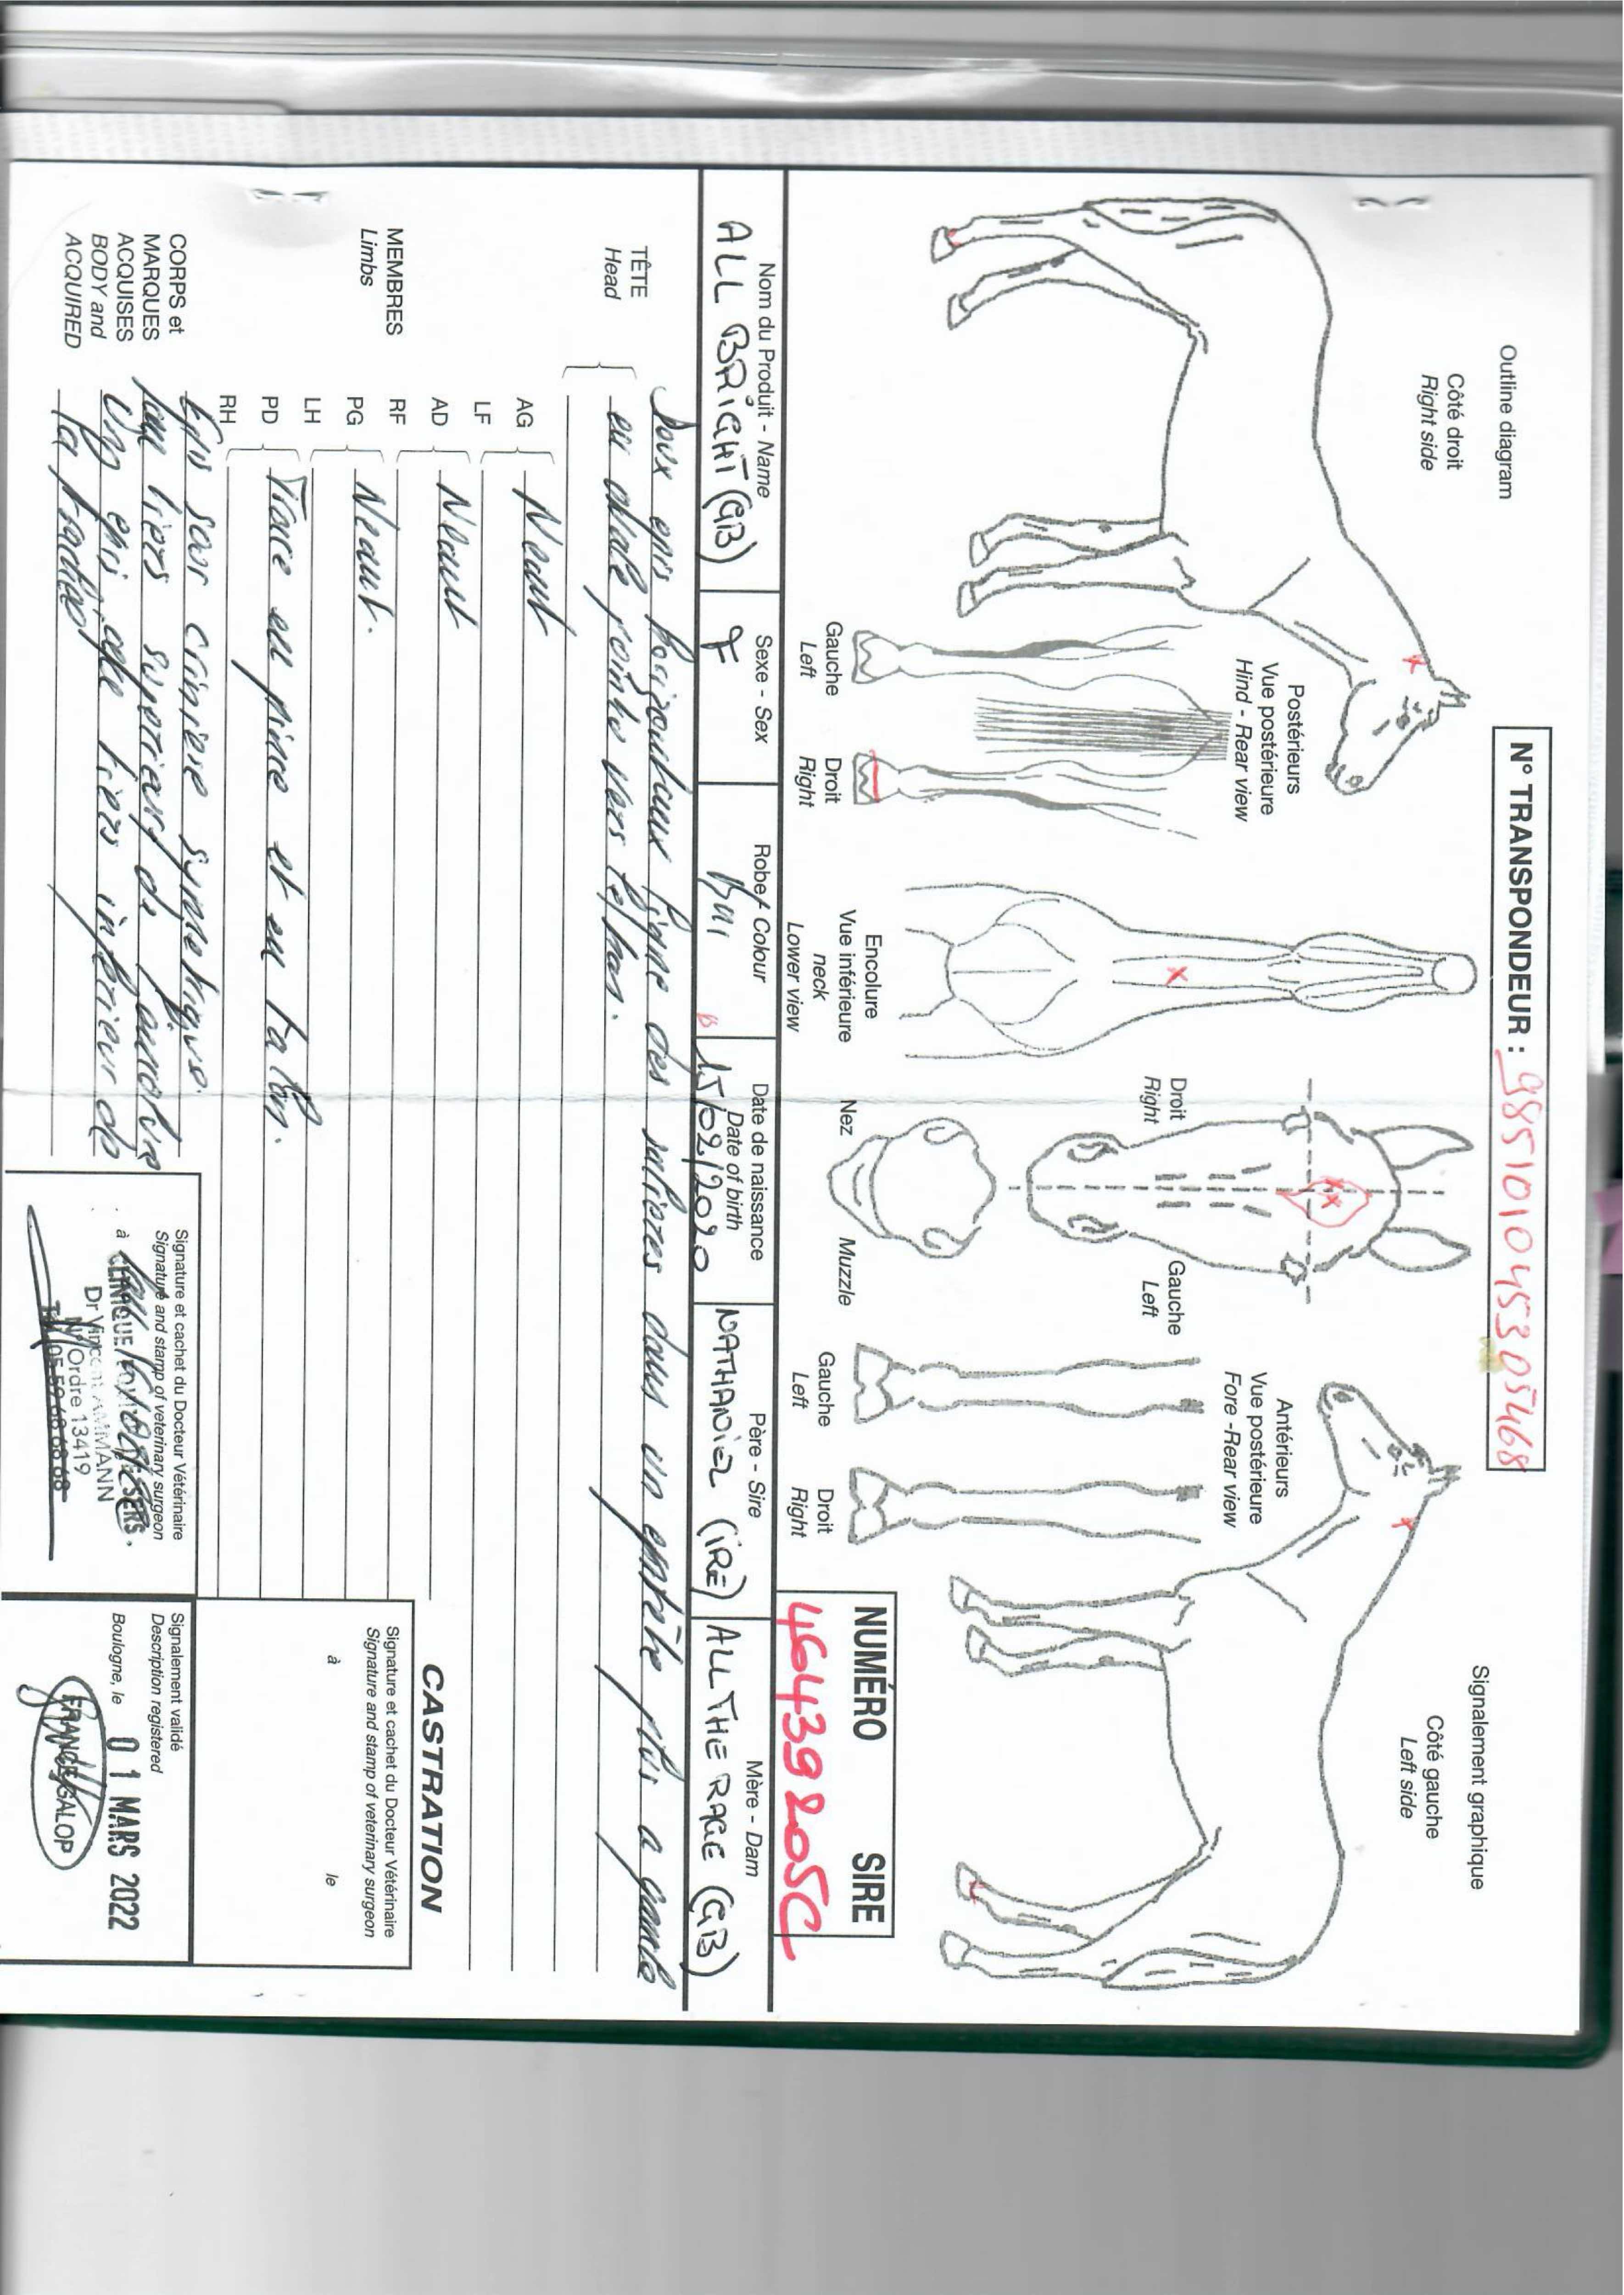 Outline diagram
Signalement graphique
N° TRANSPONDEUR : 985101045305468
Côté droit
Right side
Côté gauche
Left side
Postérieurs
Vue postérieure
Hind - Rear view
Gauche
Left
Droit
Right
Encolure
Vue inférieure
neck
Lower view
Droit
Right
Gauche
Left
Nez
Muzzle
Antérieurs
Vue postérieure
Fore -Rear view
Gauche
Left
Droit
Right
NUMÉRO SIRE
46439205C
Nom du Produit - Name
ALL BRIGHT (GB)
Sexe - Sex
F
Robe - Colour
Bai
Date de naissance
Date of birth
15/02/2020
Père - Sire
NATHANIEL (IRE)
Mère - Dam
ALL THE RAGE (GB)
TÊTE
Head
Deux épis horizontaux ligne des salières dans un en tête plus a gauche
en losange pointu vers le bas.
MEMBRES
Limbs
AG
LF
Neant
AD
RF
Neant
PG
LH
Neant.
PD
RH
Trace en pince et en talon.
CORPS et
MARQUES
ACQUISES
BODY and
ACQUIRED
Epis sous crinière symétrique
tiers supérieur de l'encolure
Un épi tiers inférieur de
la
Signature et cachet du Docteur Vétérinaire
Signature and stamp of veterinary surgeon
à CLINIQUE
Dr Vincent AMMANN
N° Ordre 13419
Tél 05 59 68 68 68
CASTRATION
Signature et cachet du Docteur Vétérinaire
Signature and stamp of veterinary surgeon
à le
Signalement validé
Description registered
Boulogne, le 01 MARS 2022
FRANCE GALOP